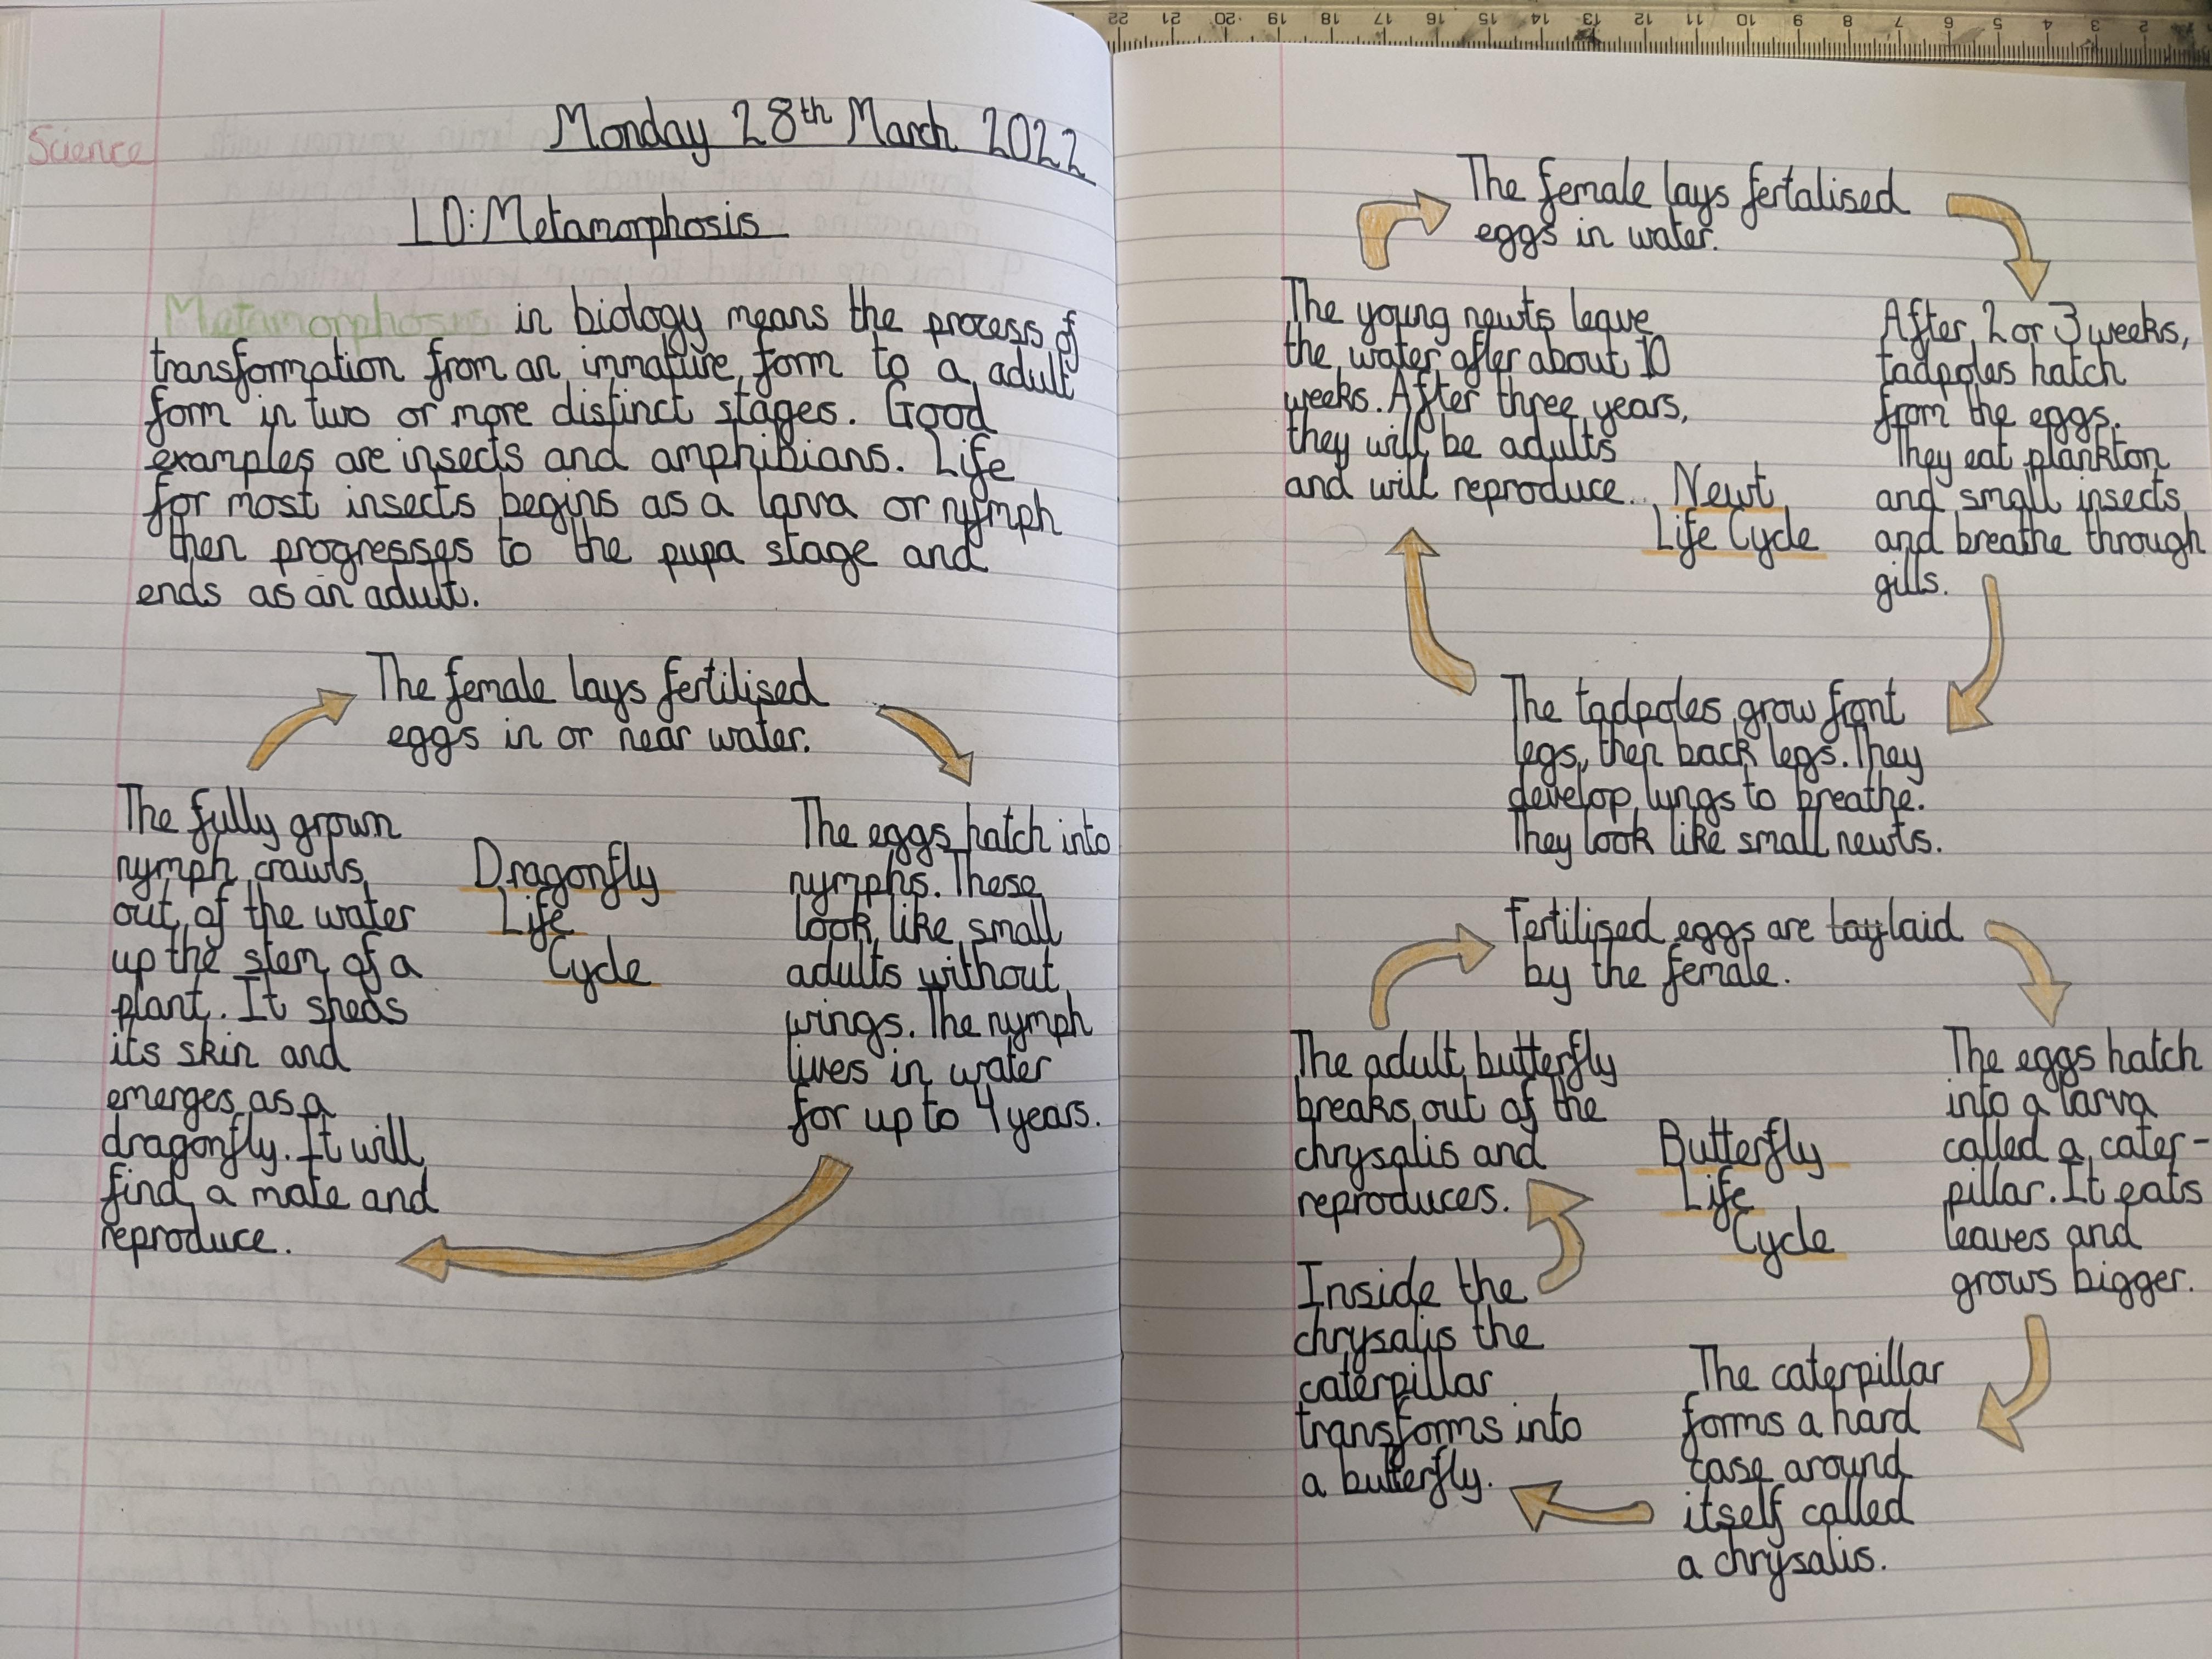 Science
Monday 28th March 2022
LO: Metamorphosis
Metamorphosis in biology means the process of
transformation from an immature form to a adult
form in two or more distinct stages. Good
examples are insects and amphibians. Life
for most insects begins as a larva or nymph
then progresses to the pupa stage and
ends as an adult.
The female lays fertilised
eggs in or near water.
The eggs hatch into
nymphs. These
look like small
adults without
wings. The nymph
lives in water
for up to 4 years.
The fully grown
nymph crawls
out of the water
up the stem of a
plant. It sheds
its skin and
emerges as a
dragonfly. It will
find a mate and
reproduce.
Dragonfly
Life
Cycle
22 21 20 19 18 17 16 15 14 13 12 11 10 9 8 7 6 5 4 3 2
The female lays fertalised
eggs in water.
After 2 or 3 weeks,
tadpoles hatch
from the eggs.
They eat plankton
and small insects
and breathe through
gills.
The tadpoles grow front
legs, then back legs. They
develop lungs to breathe.
They look like small newts.
The young newts leave
the water after about 10
weeks. After three years,
they will be adults
and will reproduce.
Newt
Life Cycle
Fertilised eggs are lay laid
by the female.
The eggs hatch
into a larva
called a cater-
pillar. It eats
leaves and
grows bigger.
The caterpillar
forms a hard
case around
itself called
a chrysalis.
Inside the
chrysalis the
caterpillar
transforms into
a butterfly.
The adult butterfly
breaks out of the
chrysalis and
reproduces.
Butterfly
Life
Cycle